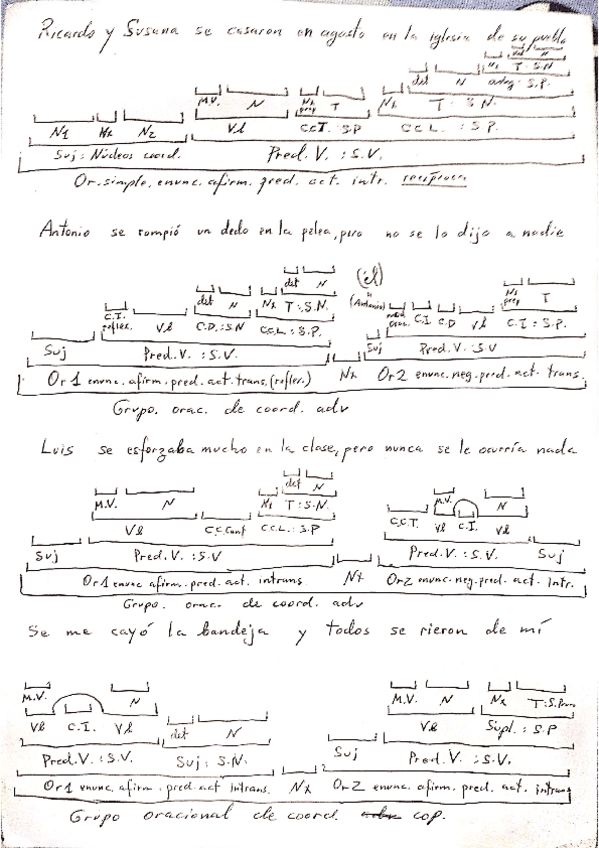 Ricardo y Susana se casaron en agosto en la iglesia de su pueblo
det N
Nx T : S.N
det N adny : S.P.
M.V. N Nx prep T Nx T : S.N.
N1 Nx N2 Vb C.C.T. : S.P C.C.L. : S.P.
Suj : Núcleos coord. Pred. V. : S.V.
Or. simple, enunc. afirm. pred. act. intr. recíproca
Antonio se rompió un dedo en la pelea, pero no se lo dijo a nadie
det N (él)
C.I. reflex. Vb det N Nx T : S.N. (Antonio) C.I C.D Vb Nx prep T
C.D. : S.N C.C.L. : S.P. C.I : S.P.
Suj Pred. V. : S.V. Suj Pred. V : S.V
Or 1 enunc. afirm. pred. act. trans. (reflex.) Nx Or 2 enunc. neg. pred. act. trans.
Grupo. orac. de coord. adv
Luis se esforzaba mucho en la clase, pero nunca se le ocurría nada
det N
M.V. N Nx T : S.N. M.V. N
Vb C.C.Cant C.C.L. : S.P C.C.T. Vb C.I. Vb
Suj Pred. V. : S.V Pred. V. : S.V. Suj
Or 1 enunc afirm. pred. act. intrans Nx Or 2 enunc. neg. pred. act. Intr.
Grupo. orac. de coord. adv
Se me cayó la bandeja y todos se rieron de mí
M.V. N M.V. N Nx T : S.Pron
Vb C.I. Vb det N Vb Supl. : S.P
Pred. V. : S.V. Suj : S.N. Suj Pred. V. : S.V.
Or 1 enunc. afirm. pred. act intrans. Nx Or 2 enunc. afirm. pred. act. intrans
Grupo oracional de coord. cop.